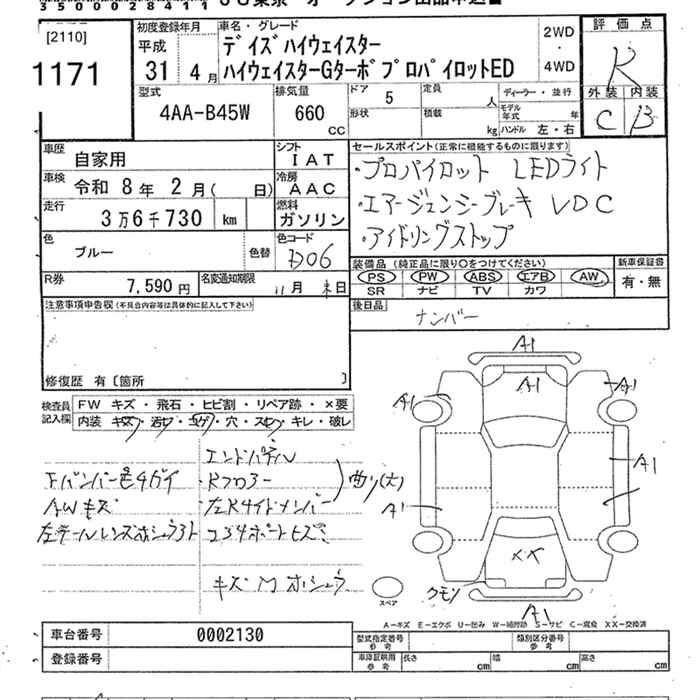 350000028411
[2110]
1171
初度登録年月
平成
31 4月
車名・グレード
デイズハイウェイスター
ハイウェイスターGターボプロパイロットED
2WD
・
4WD
評価点
R
外装 内装
C B
型式
4AA-B45W
排気量
660
CC
ドア 5
形状
定員 人
積載 kg
ディーラー・並行
モデル年式 年
ハンドル 左・右
車歴
自家用
シフト
IAT
車検
令和 8年 2月( 日)
冷房
AAC
走行
3万6千730 km
燃料
ガソリン
色
ブルー
色替
色コード
B06
R券
7,590円
名変通知期限
11月末日
セールスポイント(正常に機能するものに限ります)
・プロパイロット LEDライト
・エマージェンシーブレーキ VDC
・アイドリングストップ
装備品(純正品に限り○をつけてください)
PS PW ABS エアB AW
SR ナビ TV カワ
新車保証書
有・無
後日品
ナンバー
注意事項申告欄(不具合内容等は具体的に記入して下さい)
修復歴 有〔箇所 〕
検査員記入欄
FW キズ・飛石・ヒビ割・リペア跡・×要
内装 キズ・汚レ・コゲ・穴・スレ・キレ・破レ
Fバンパー色チガイ
AWキズ
左テールレンズホシュウアト
エンドパネル
Rフロアー
左Rサイドメンバー
曲リ(大)
コネポートヒズミ
キズM ホシュウ
A1
A1
A1
A1
A1
A1
××
クモリ
A1
スペア
A-キズ E-エクボ U-凹み W-補修跡 S-サビ C-腐食 XX-交換済
車台番号
0002130
登録番号
型式指定番号
参考
類別区分番号
参考
車庫証明用
参考
長さ cm
幅 cm
高さ cm